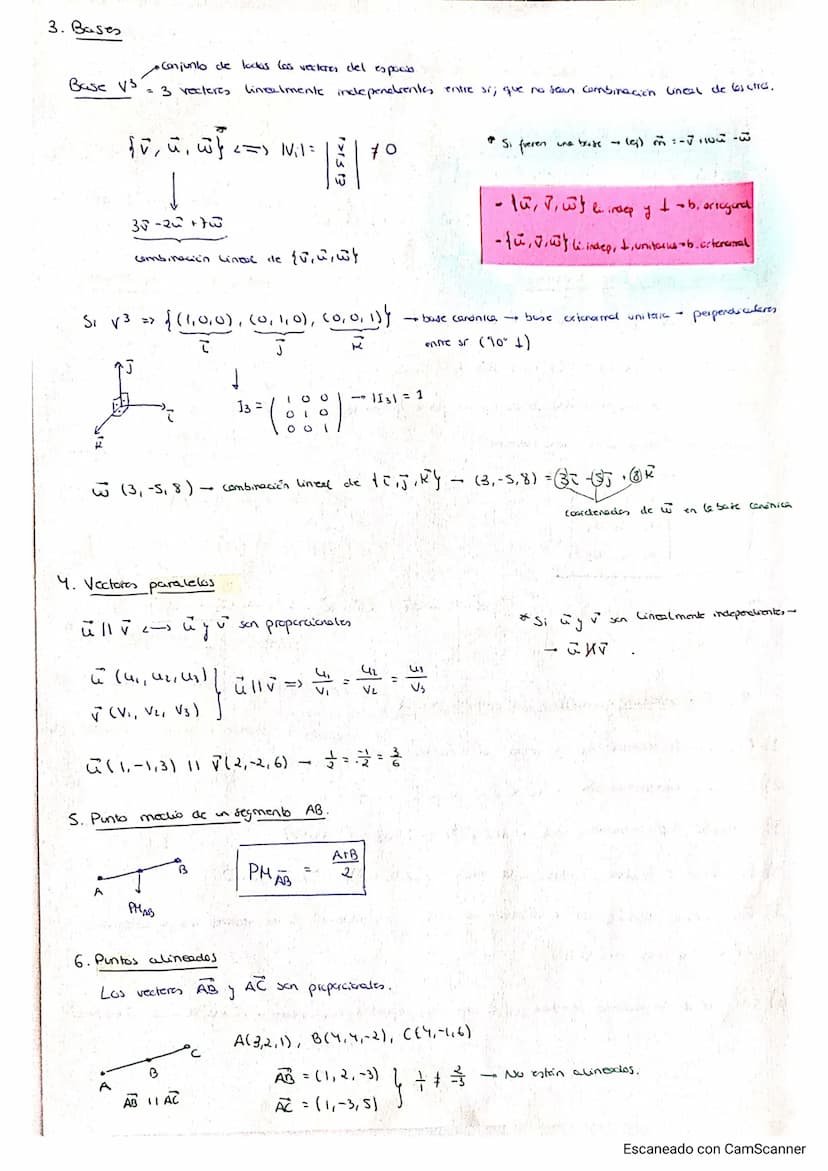 3. Bases
conjunto de todos los vectores del espacio
Base V³ = 3 vectores linealmente independientes entre sí; que no sean combinación lineal de los otros.
{v⃗, u⃗, w⃗} <=> |V₁| = |v⃗ u⃗ w⃗| ≠ 0
* Si fueren una base → (ej) m⃗ = -v⃗ + 10u⃗ - w⃗
3v⃗ - 2u⃗ + 7w⃗
combinación lineal de {v⃗, u⃗, w⃗}
- {u⃗, v⃗, w⃗} li. indep y ⊥ → b. ortogonal
- {u⃗, v⃗, w⃗} li. indep, ⊥, unitarios → b. ortonormal
Si V³ => {(1,0,0), (0,1,0), (0,0,1)} → base canónica → base ortonormal unitaria → perpendiculares
i⃗ j⃗ k⃗ entre sí (90° ⊥)
j⃗
i⃗
k⃗
I₃ = ( 1 0 0
0 1 0
0 0 1 ) → |I₃| = 1
w⃗ (3, -5, 8) → combinación lineal de {i⃗, j⃗, k⃗} → (3, -5, 8) = 3i⃗ - 5j⃗ + 8k⃗
coordenadas de w⃗ en la base canónica
4. Vectores paralelos
u⃗ || v⃗ <-> u⃗ y v⃗ son proporcionales
* Si u⃗ y v⃗ son linealmente independientes →
→ u⃗ ∦ v⃗.
u⃗ (u₁, u₂, u₃)
v⃗ (v₁, v₂, v₃) } u⃗ || v⃗ => u₁/v₁ = u₂/v₂ = u₃/v₃
u⃗ (1, -1, 3) || v⃗ (2, -2, 6) → 1/2 = -1/-2 = 3/6
5. Punto medio de un segmento AB.
A B
PM_AB
PM_AB = A+B/2
6. Puntos alineados
Los vectores AB⃗ y AC⃗ son proporcionales.
A(3,2,1), B(4,4,-2), C(4,-1,6)
A B C
AB⃗ || AC⃗
AB⃗ = (1, 2, -3)
AC⃗ = (1, -3, 5) } 1/1 ≠ 2/-3 → No están alineados.
Escaneado con CamScanner